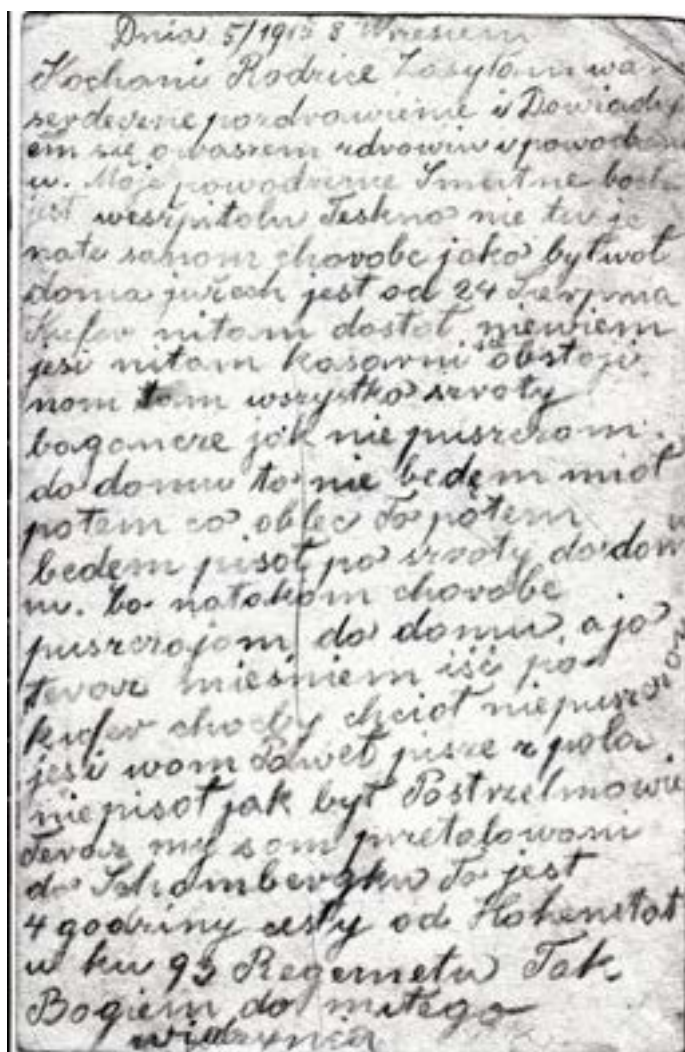 Dnia 5/1915 8 Wresiem
Kochani Rodzice Zasyłam wam
serdeczne pozdrowienie i Dowiaduj
em się o waszem zdrowiu i powodzeni
u. Moje powodzenie Smutne boch
jest weszpitolu Teskno nie tu je
natu samom chorobe jako bytwoł
doma jużech jest od 24 Sierpnia
Kufer nitam dostoł niewiem
jesi nitam kasarni się obstoji
nom tam wszystko szroty
bagancze jak niepuszczom
do domu to nie bedem mioł
potem co oblec To potem
bedem pisoł po szroty do dom
u. bo natakom chorobe
puszczajom do domu, a jo
teroz miesniem iść po
kufer choćby chcioł niepuszczajom
jesi wom Paweł pisze z pola
niepisoł jak był Postrzelmowie
Teroz my som pretalowani
do Schombergku To jest
4 godziny cesty od Hohenstot
u ku 93 Regemetu Tak
Bogiem do miłego
widzynia